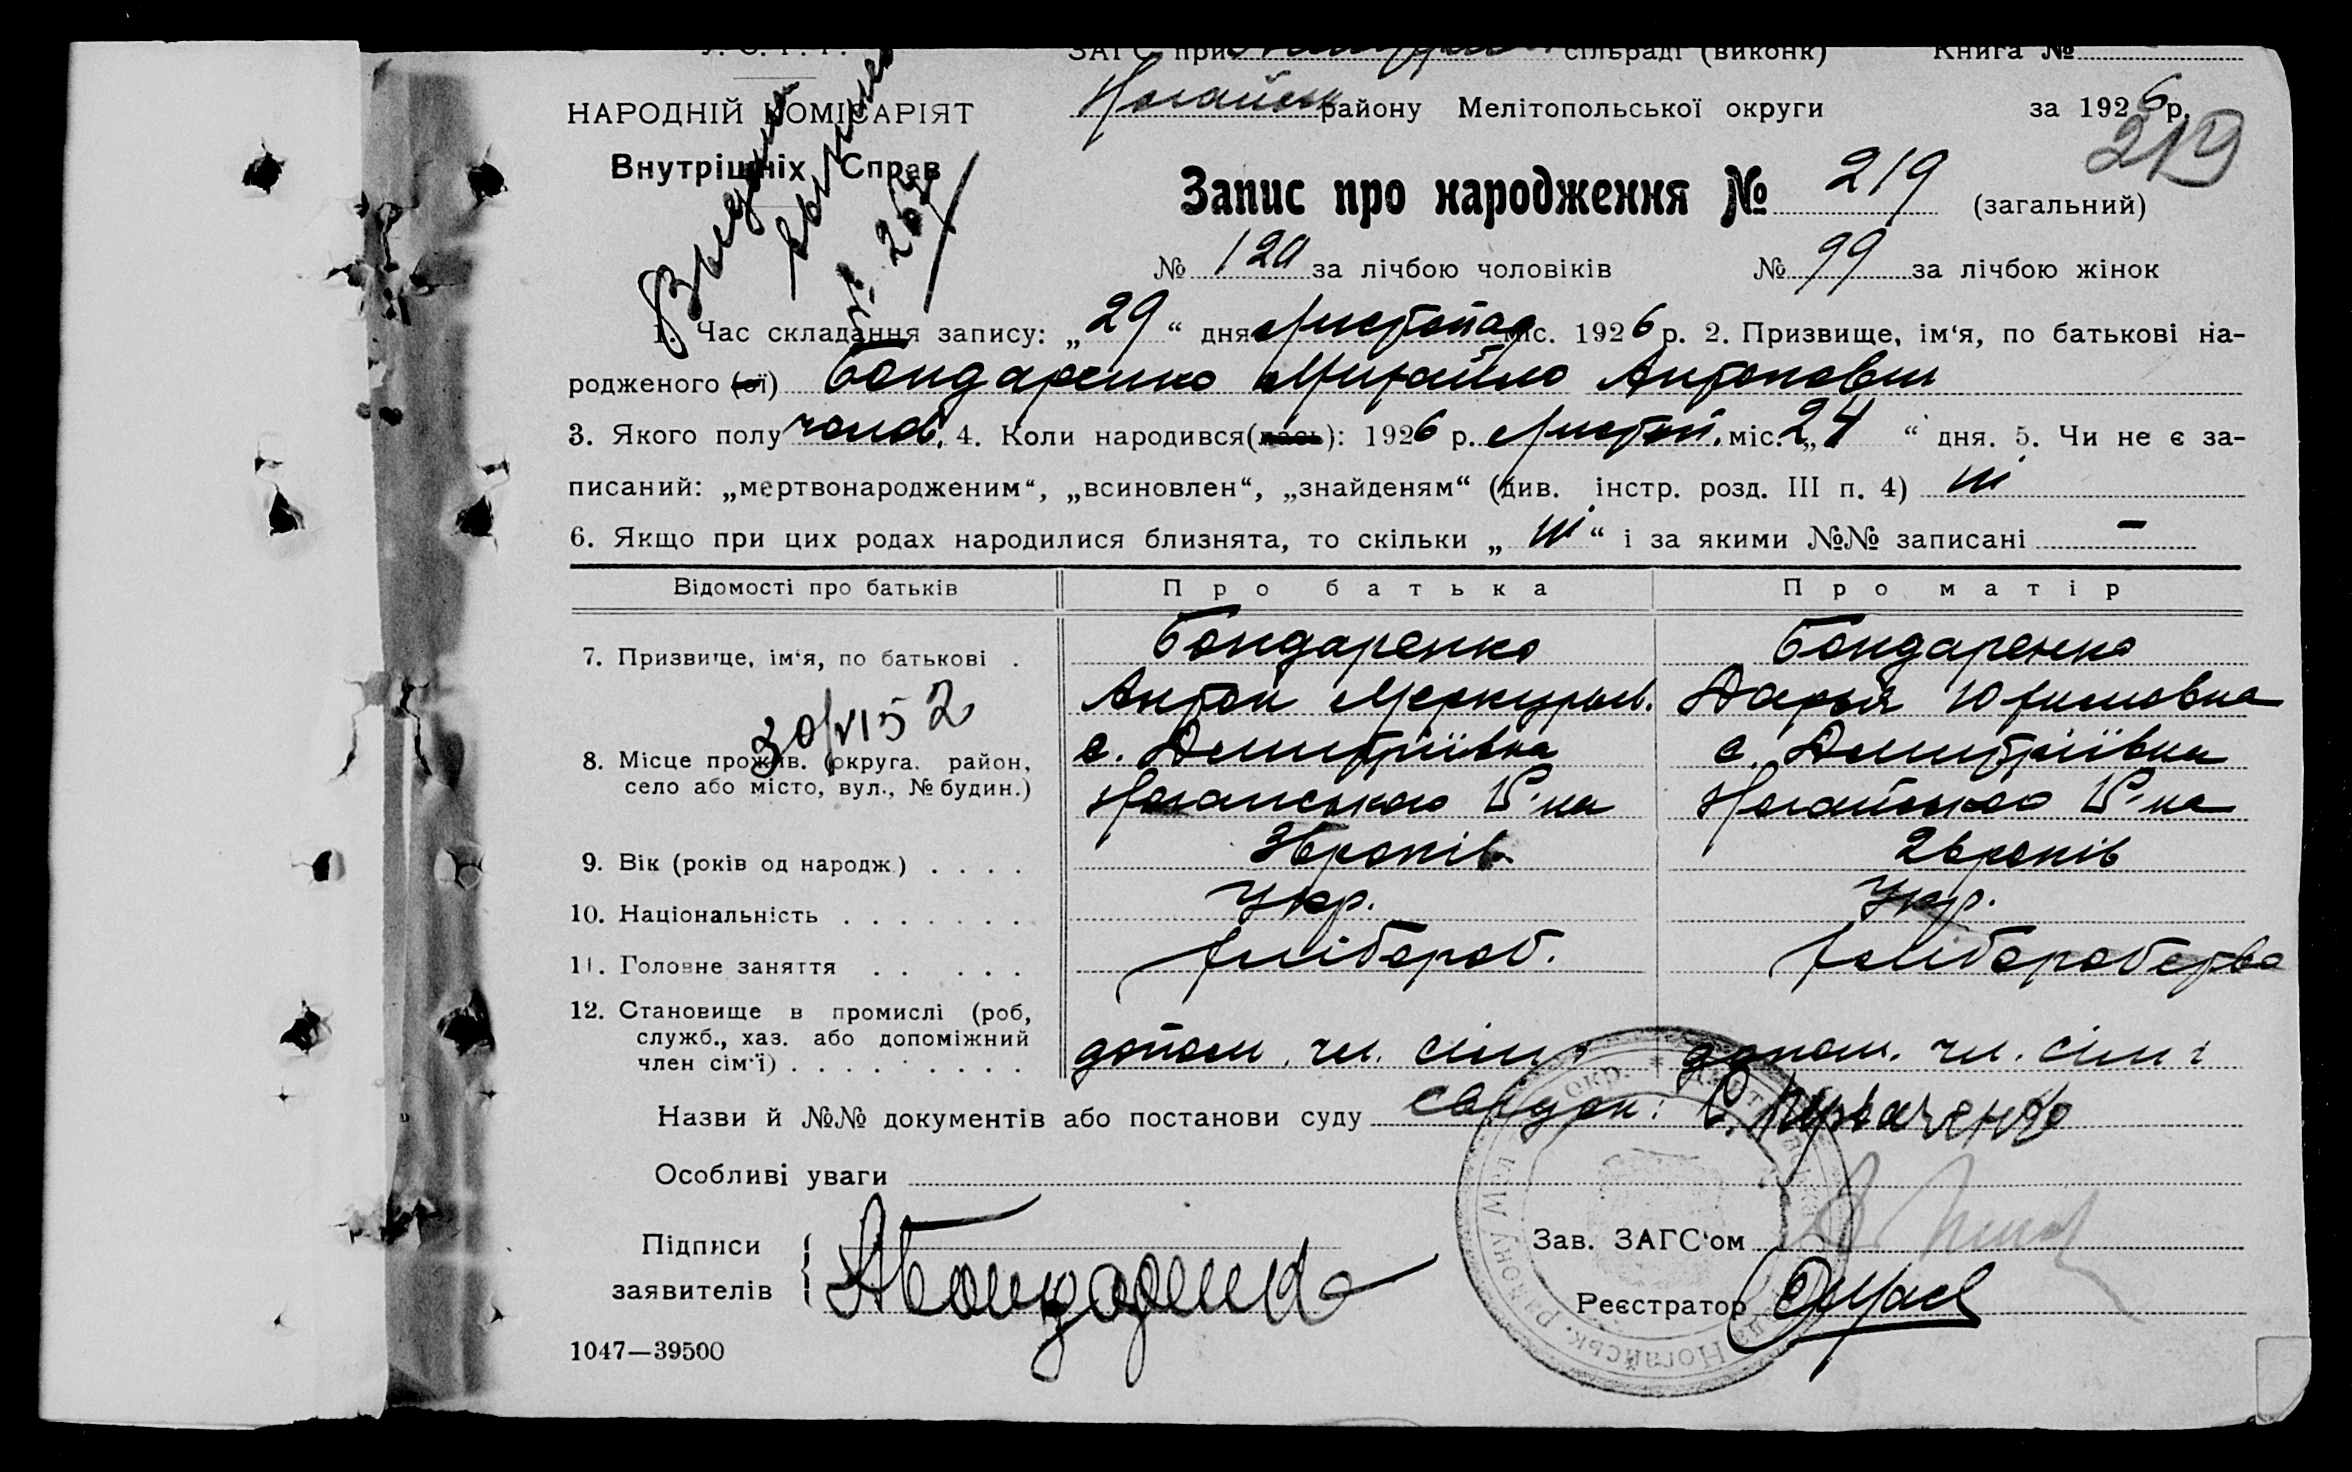 У. С. Р. Р.
ЗАГС при сільраді (виконк) Книга №
НАРОДНІЙ КОМІСАРІЯТ
Внутрішніх Справ
Ногайськ району Мелітопольської округи за 1926 р.
219
Запис про народження № 219 (загальний)
№ 120 за лічбою чоловіків № 99 за лічбою жінок
1. Час складання запису: „29“ дня листопад міс. 1926 р. 2. Призвище, ім‘я, по батькові на-
родженого (ої) Бондаренко Михайло Антонович
3. Якого полу чолов. 4. Коли народився(лась): 1926 р. листоп. міс. „24“ дня. 5. Чи не є за-
писаний: „мертвонародженим“, „всиновлен“, „знайденям“ (див. інстр. розд. III п. 4) ні
6. Якщо при цих родах народилися близнята, то скільки „ні“ і за якими №№ записані –
Відомості про батьків Про батька Про матір
7. Призвище, ім‘я, по батькові . Бондаренко Бондаренко
Антон Меркурьев. Дарья Юхимовна
8. Місце прожив. (округа. район, село або місто, вул., № будин.) с. Дмитріївка с. Дмитріївка
Ногайського Р-на Ногайського Р-на
9. Вік (років од народж.) . . . . років 26 років
10. Національність . . . . . . . Укр. Укр.
11. Головне заняття . . . . . . хлібороб. хлиборобство
12. Становище в промислі (роб, служб., хаз. або допоміжний член сім‘ї) . . . . . . . . . допом. чл. сімї допом. чл. сімї
Назви й №№ документів або постанови суду свідок:
Особливі уваги
Підписи
заявителів АБондаренко
Зав. ЗАГС‘ом
Реєстратор
1047—39500